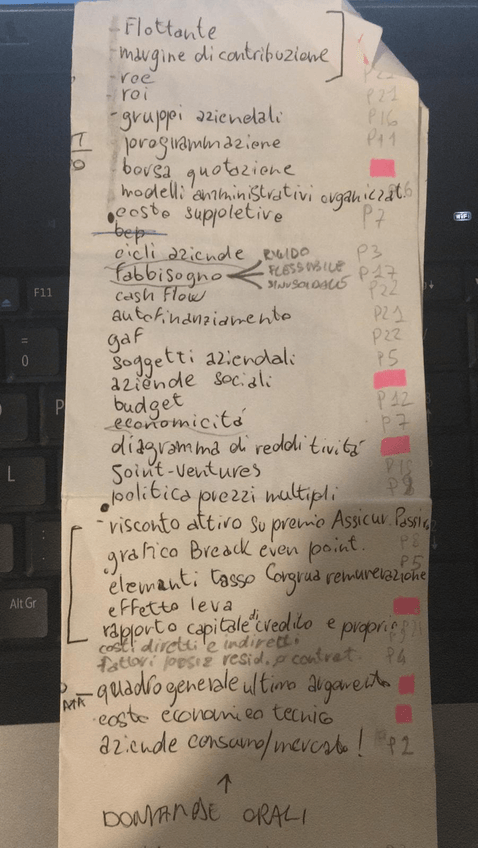 - Flottante
- margine di contribuzione
- roe P22
- roi P21
- gruppi aziendali P16
programmazione P11
borsa quotazione
modelli amministrativi organizzat. 6
costo suppletivo P7
bep
cicli aziende P3
fabbisogno RIGIDO FLESSIBILE SINUSOIDALE P17
cash flow P22
autofinanziamento P21
gaf P22
soggetti aziendali P5
aziende sociali
budget P12
economicità P7
diagramma di redditività
Soint-ventures
politica prezzi multipli
- risconto attivo su premio Assicur. Passivo
grafico Breack even point. P8
elementi tasso Congrua remunerazione P5
effetto leva
rapporto capitale di credito e proprio
costi diretti e indiretti
fattori posiz resid. contrat. P4
quadro generale ultimo argomento
costo economico tecnico
aziende consumo/mercato! P2
↑
DOMANDE ORALI
F11
=
0
P
L
Alt Gr